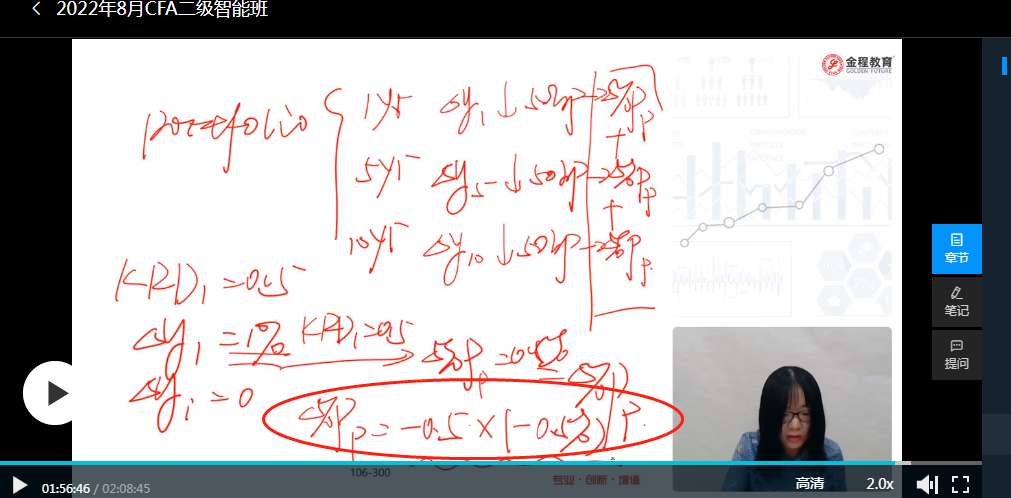 2022年8月CFA二级智能班
金程教育
GOLDEN FUTURE
portfolio
1yr Δy₁ ↓ 50bp → Δ%Pₚ
+
5yr Δy₅ ↓ 50bp → Δ%Pₚ
+
10yr Δy₁₀ ↓ 50bp → Δ%Pₚ
KRD₁ = 0.5
Δy₁ = 1% KRD₁ = 0.5
Δyᵢ = 0
Δ%Pₚ = -0.5 × (-0.5%)
章节
笔记
提问
106-300
专业·创新·增值
01:56:46 / 02:08:45
高清
2.0x